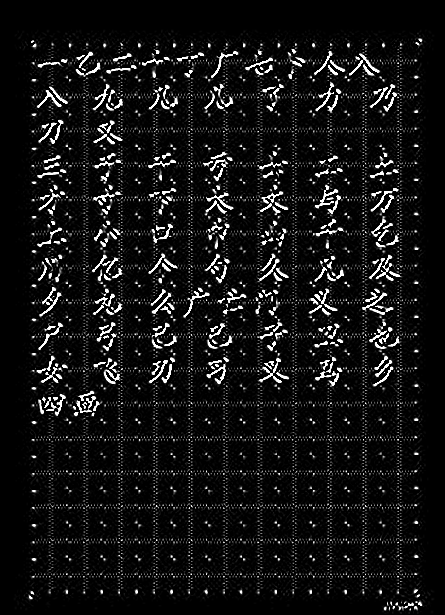 一乙二十丁厂七卜人入
八 九 几 儿 了 力 乃
刀 又
三 于 干 亏 士 工 土
才 寸 下 大 丈 与 万
上 小 口 巾 山 千 乞
川 亿 个 勺 久 凡 及
夕 丸 么 广 亡 门 义 之
尸 弓 己 已 子 卫 也
女 飞 刃 习 叉 马 乡
四画